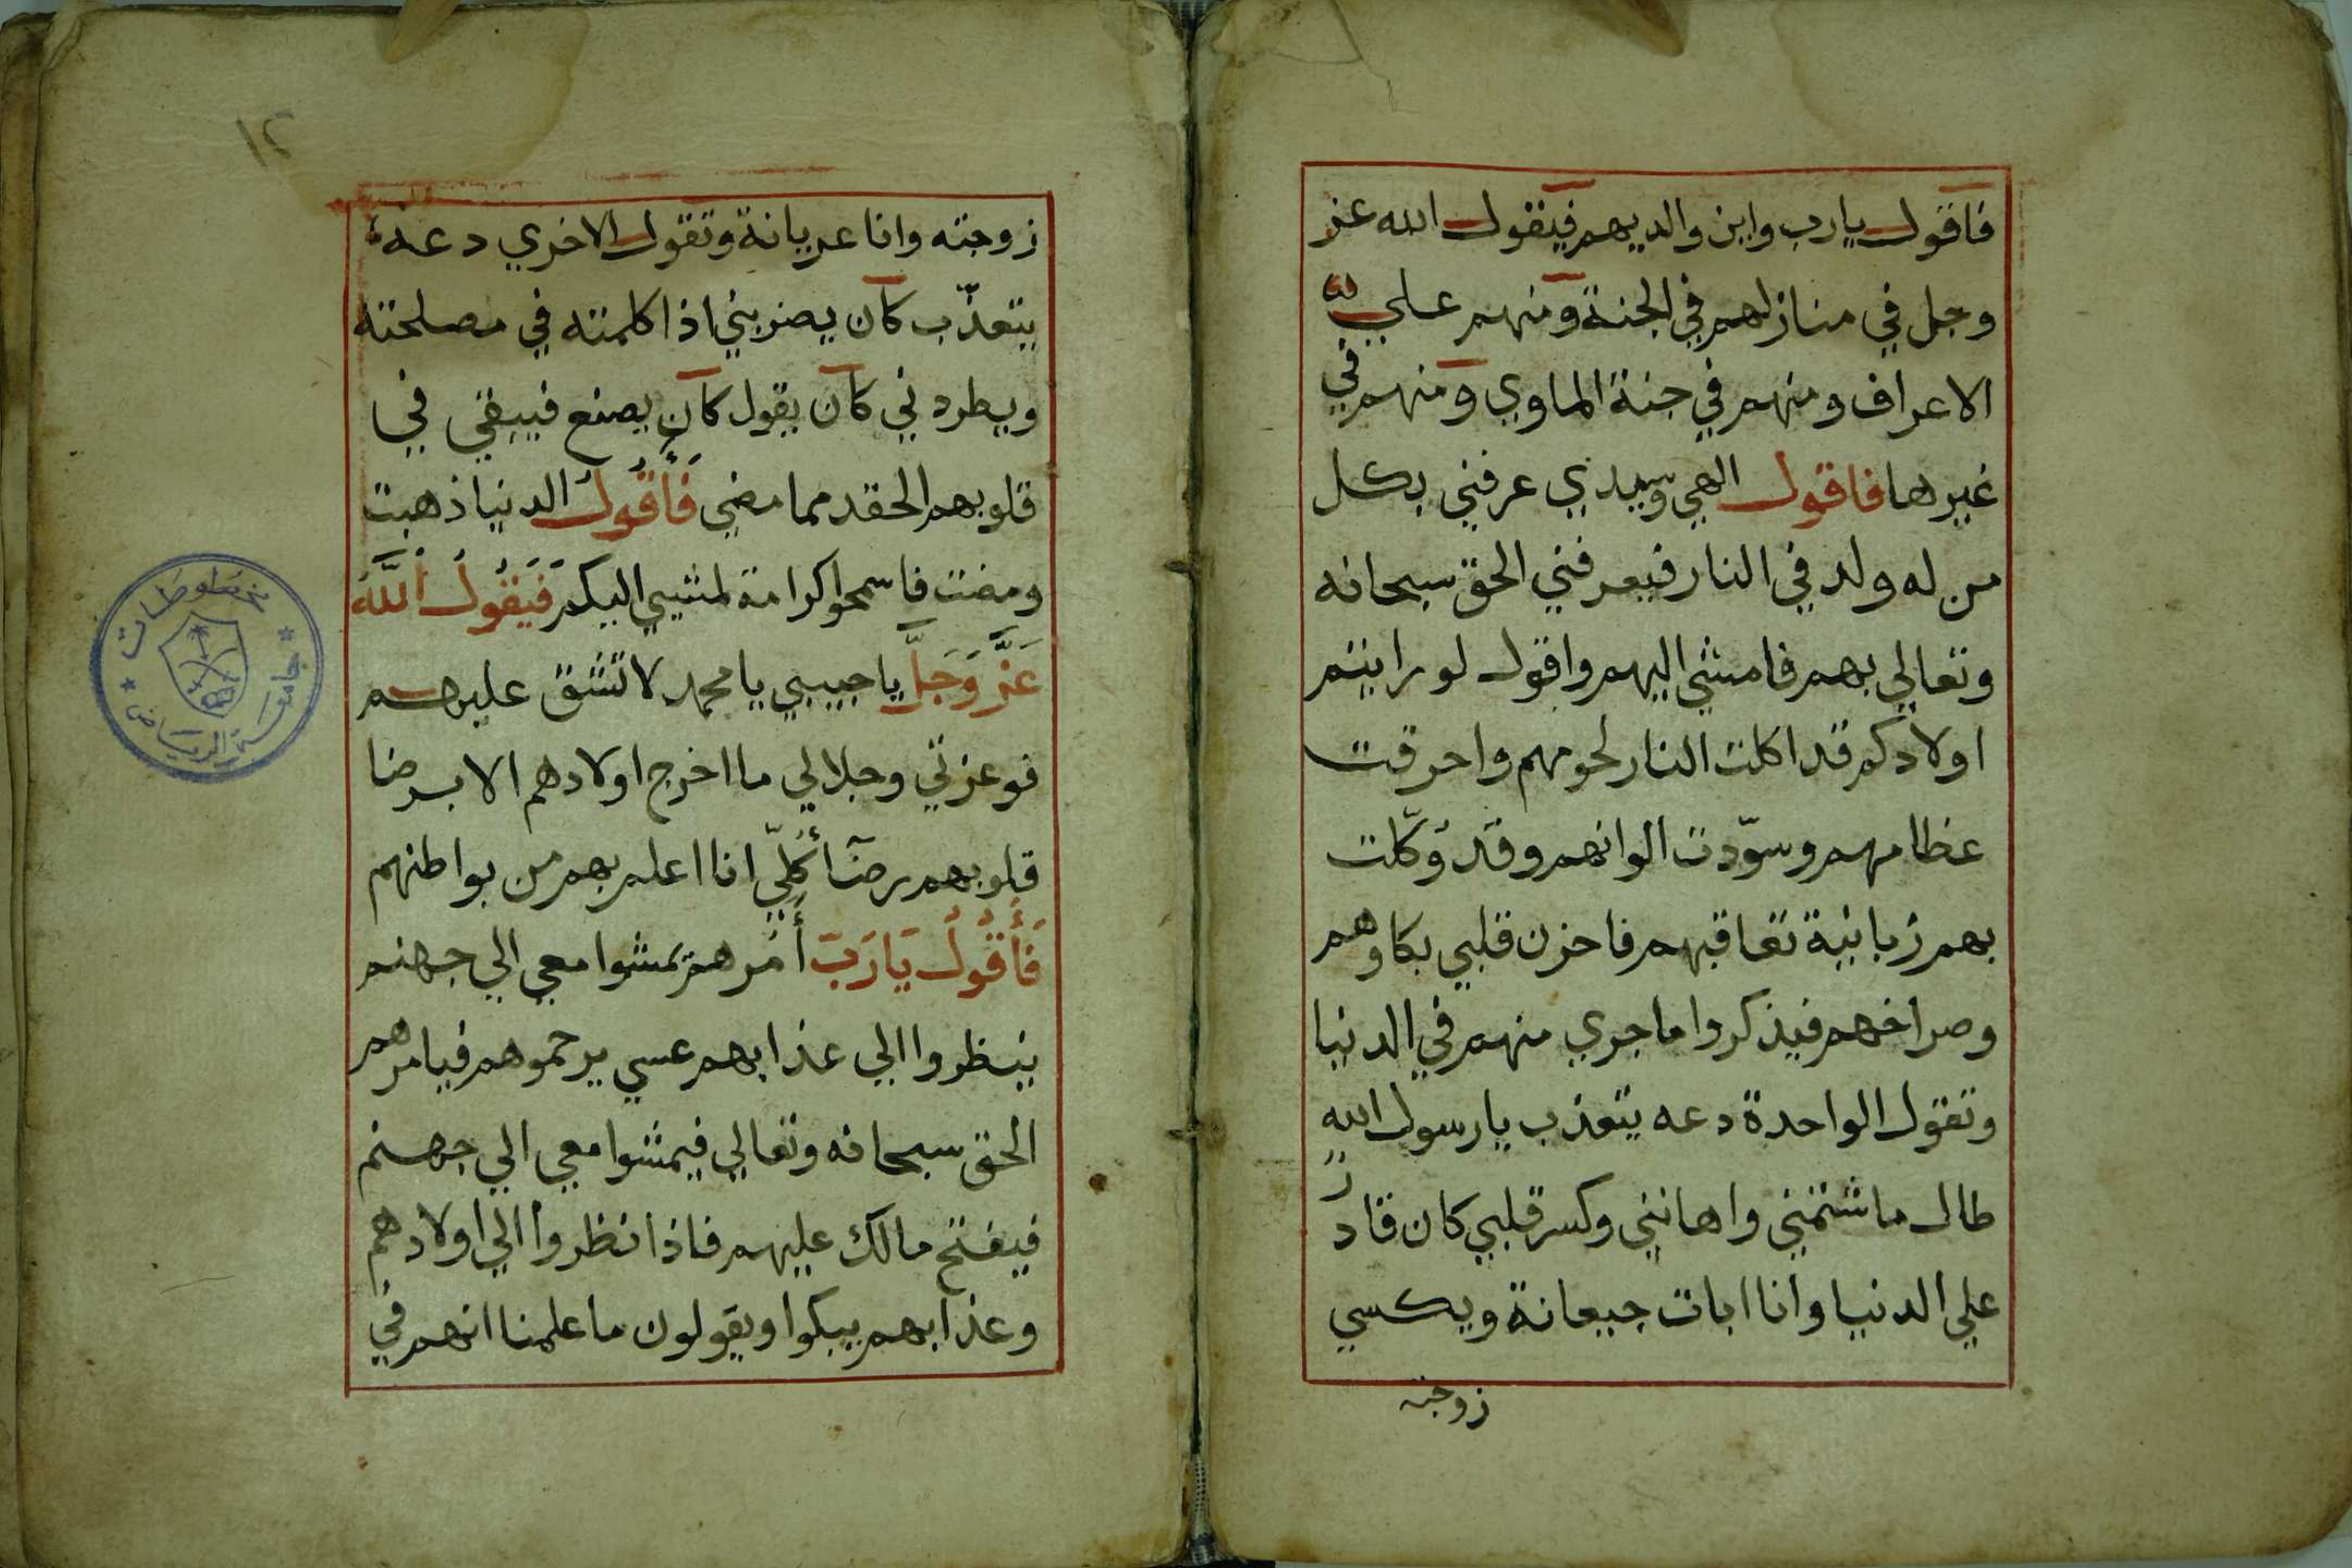 فاقول يارب واين والديهم فيقول الله عز
وجل في منازلهم في الجنة ومنهم علي
الاعراف ومنهم في جنة الماوي ومنهم في
غيرها فاقول الهي وسيدي عرفني بكل
من له ولد في النار فيعرفني الحق سبحانه
وتعالي بهم فامشي اليهم واقول لو رايتم
اولادكم قد اكلت النار لحومهم واحرقت
عظامهم وسوّدت الوانهم وقد وكّلت
بهم زبانية تعاقبهم فاحزن قلبي بكاوهم
وصراخهم فيذكروا ما جري منهم في الدنيا
وتقول الواحدة دعه يتعذب يارسول الله
طال ما شتمني واهانني وكسر قلبي كان قادر
علي الدنيا وانا ابات جيعانة ويكسي
زوجته
١٢
زوجته وانا عريانة وتقول الاخري دعه
يتعذّب كان يضربني اذا كلمته في مصلحته
ويطردني كان يقول كان يصنع فيبقي في
قلوبهم الحقد مما مضي فَأَقُولُ الدنيا ذهبت
ومضت فاسمحوا كرامة لمشيي اليكم فَيَقُولُ اللَّهُ
عَزَّ وَجَلَّ يا حبيبي يا محمد لا تشق عليهم
فوعزتي وجلالي ما اخرج اولادهم الا برضا
قلوبهم رضًا كُلِّي انا اعلم بهم من بواطنهم
فَأَقُولُ يَارَبّ أَمُرهم يمشوا معي الي جهنم
ينظروا الي عذابهم عسي يرحموهم فيامرهم
الحق سبحانه وتعالي فيمشوا معي الي جهنم
فيفتح مالك عليهم فاذا نظروا الي اولادهم
وعذابهم يبكوا ويقولون ما علمنا انهم في
جامعة الرياض
مخطوطات